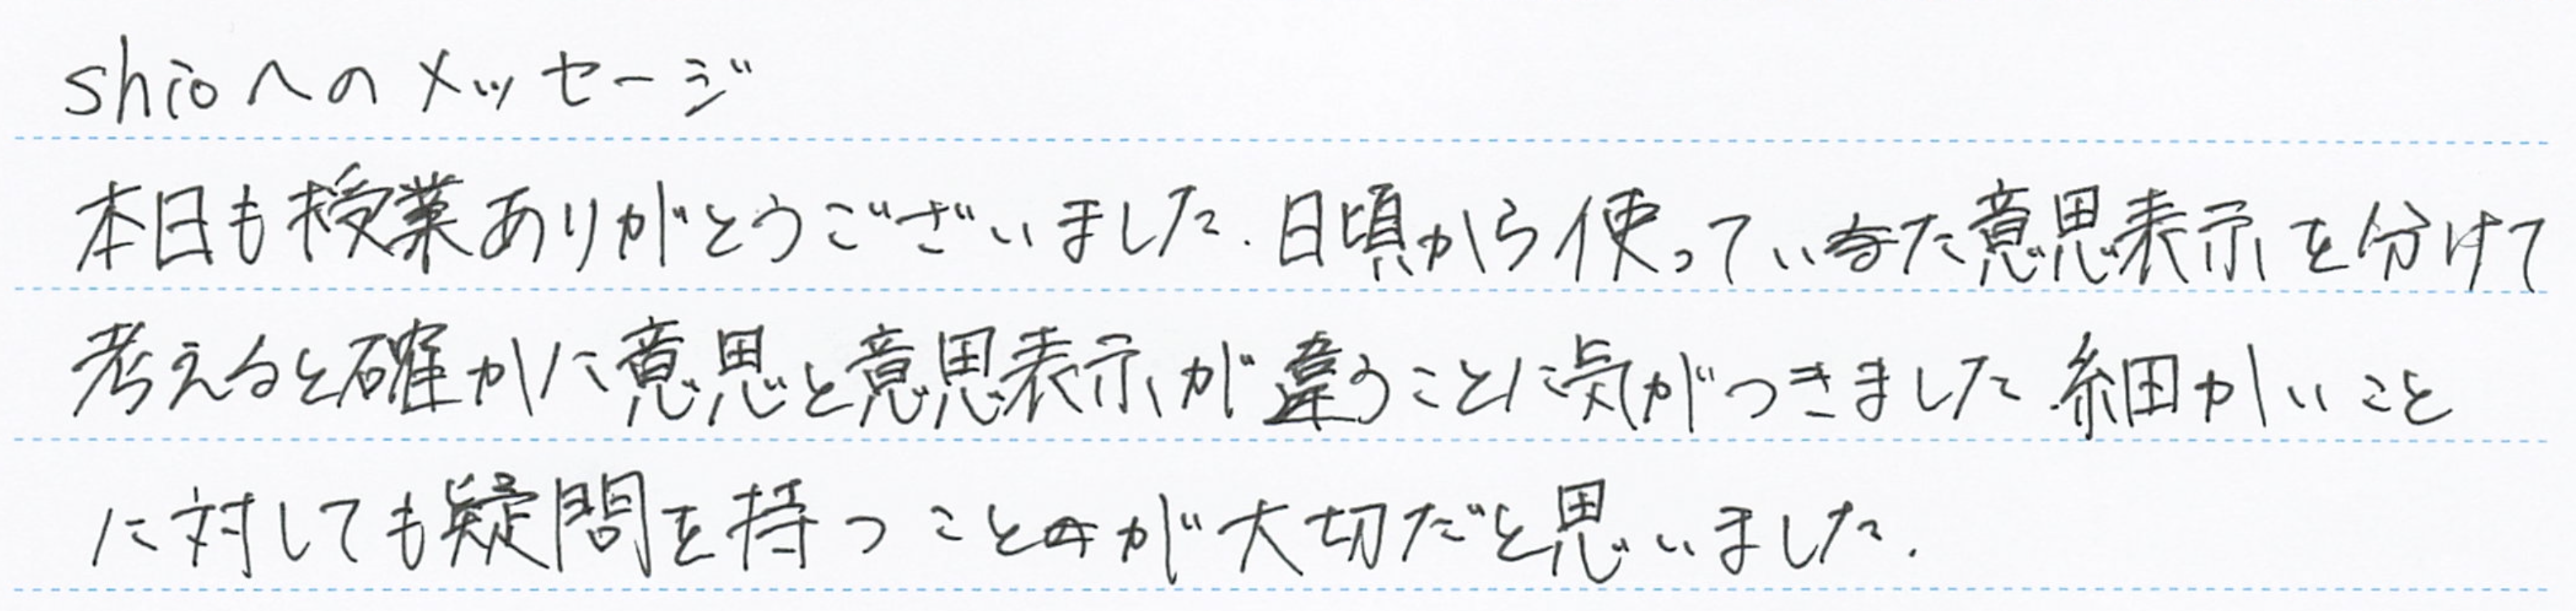 shioへのメッセージ
本日も授業ありがとうございました.日頃から使っていた意思表示を分けて
考えると確かに意思と意思表示が違うことに気がつきました.細かいこと
に対しても疑問を持つことが大切だと思いました.